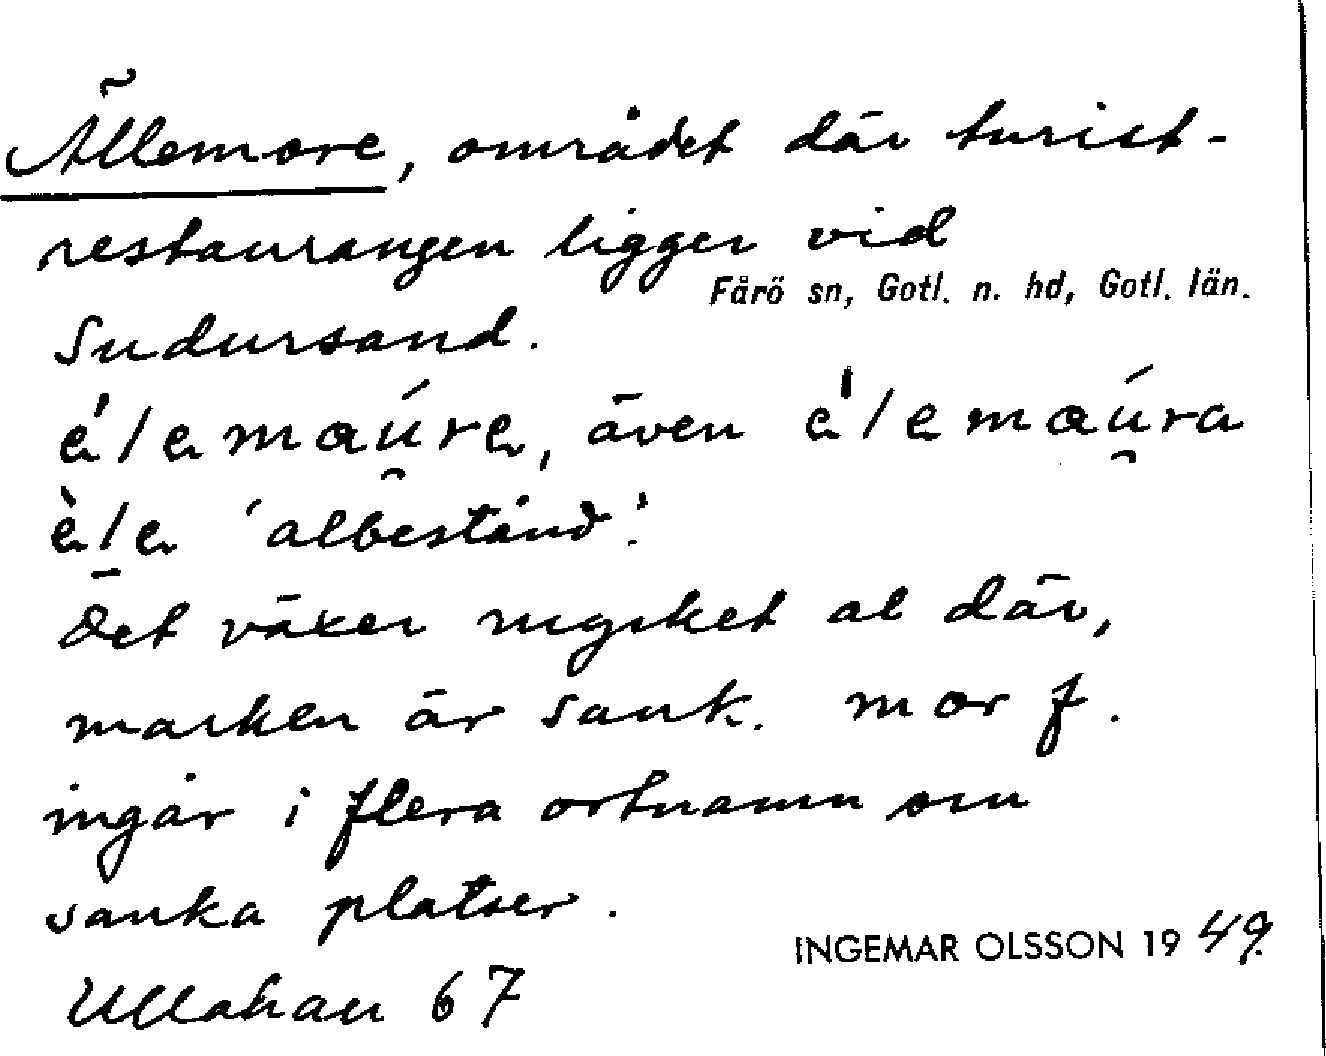 Ällemore, området där turist-
restaurangen ligger vid
Fårö sn, Gotl. n. hd, Gotl. län.
Sudursand.
é̀lemaúre, även é̀lemaúra
èle 'albestånd'.
Det växer mycket al där,
marken är sank. mor f.
ingår i flera ortnamn om
sanka platser.
INGEMAR OLSSON 1949.
Ullahau 67